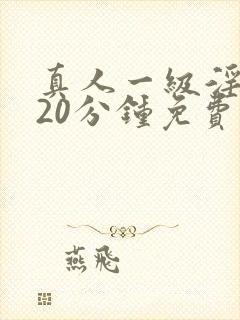 真人一級淫
20分鍾免費
燕飛